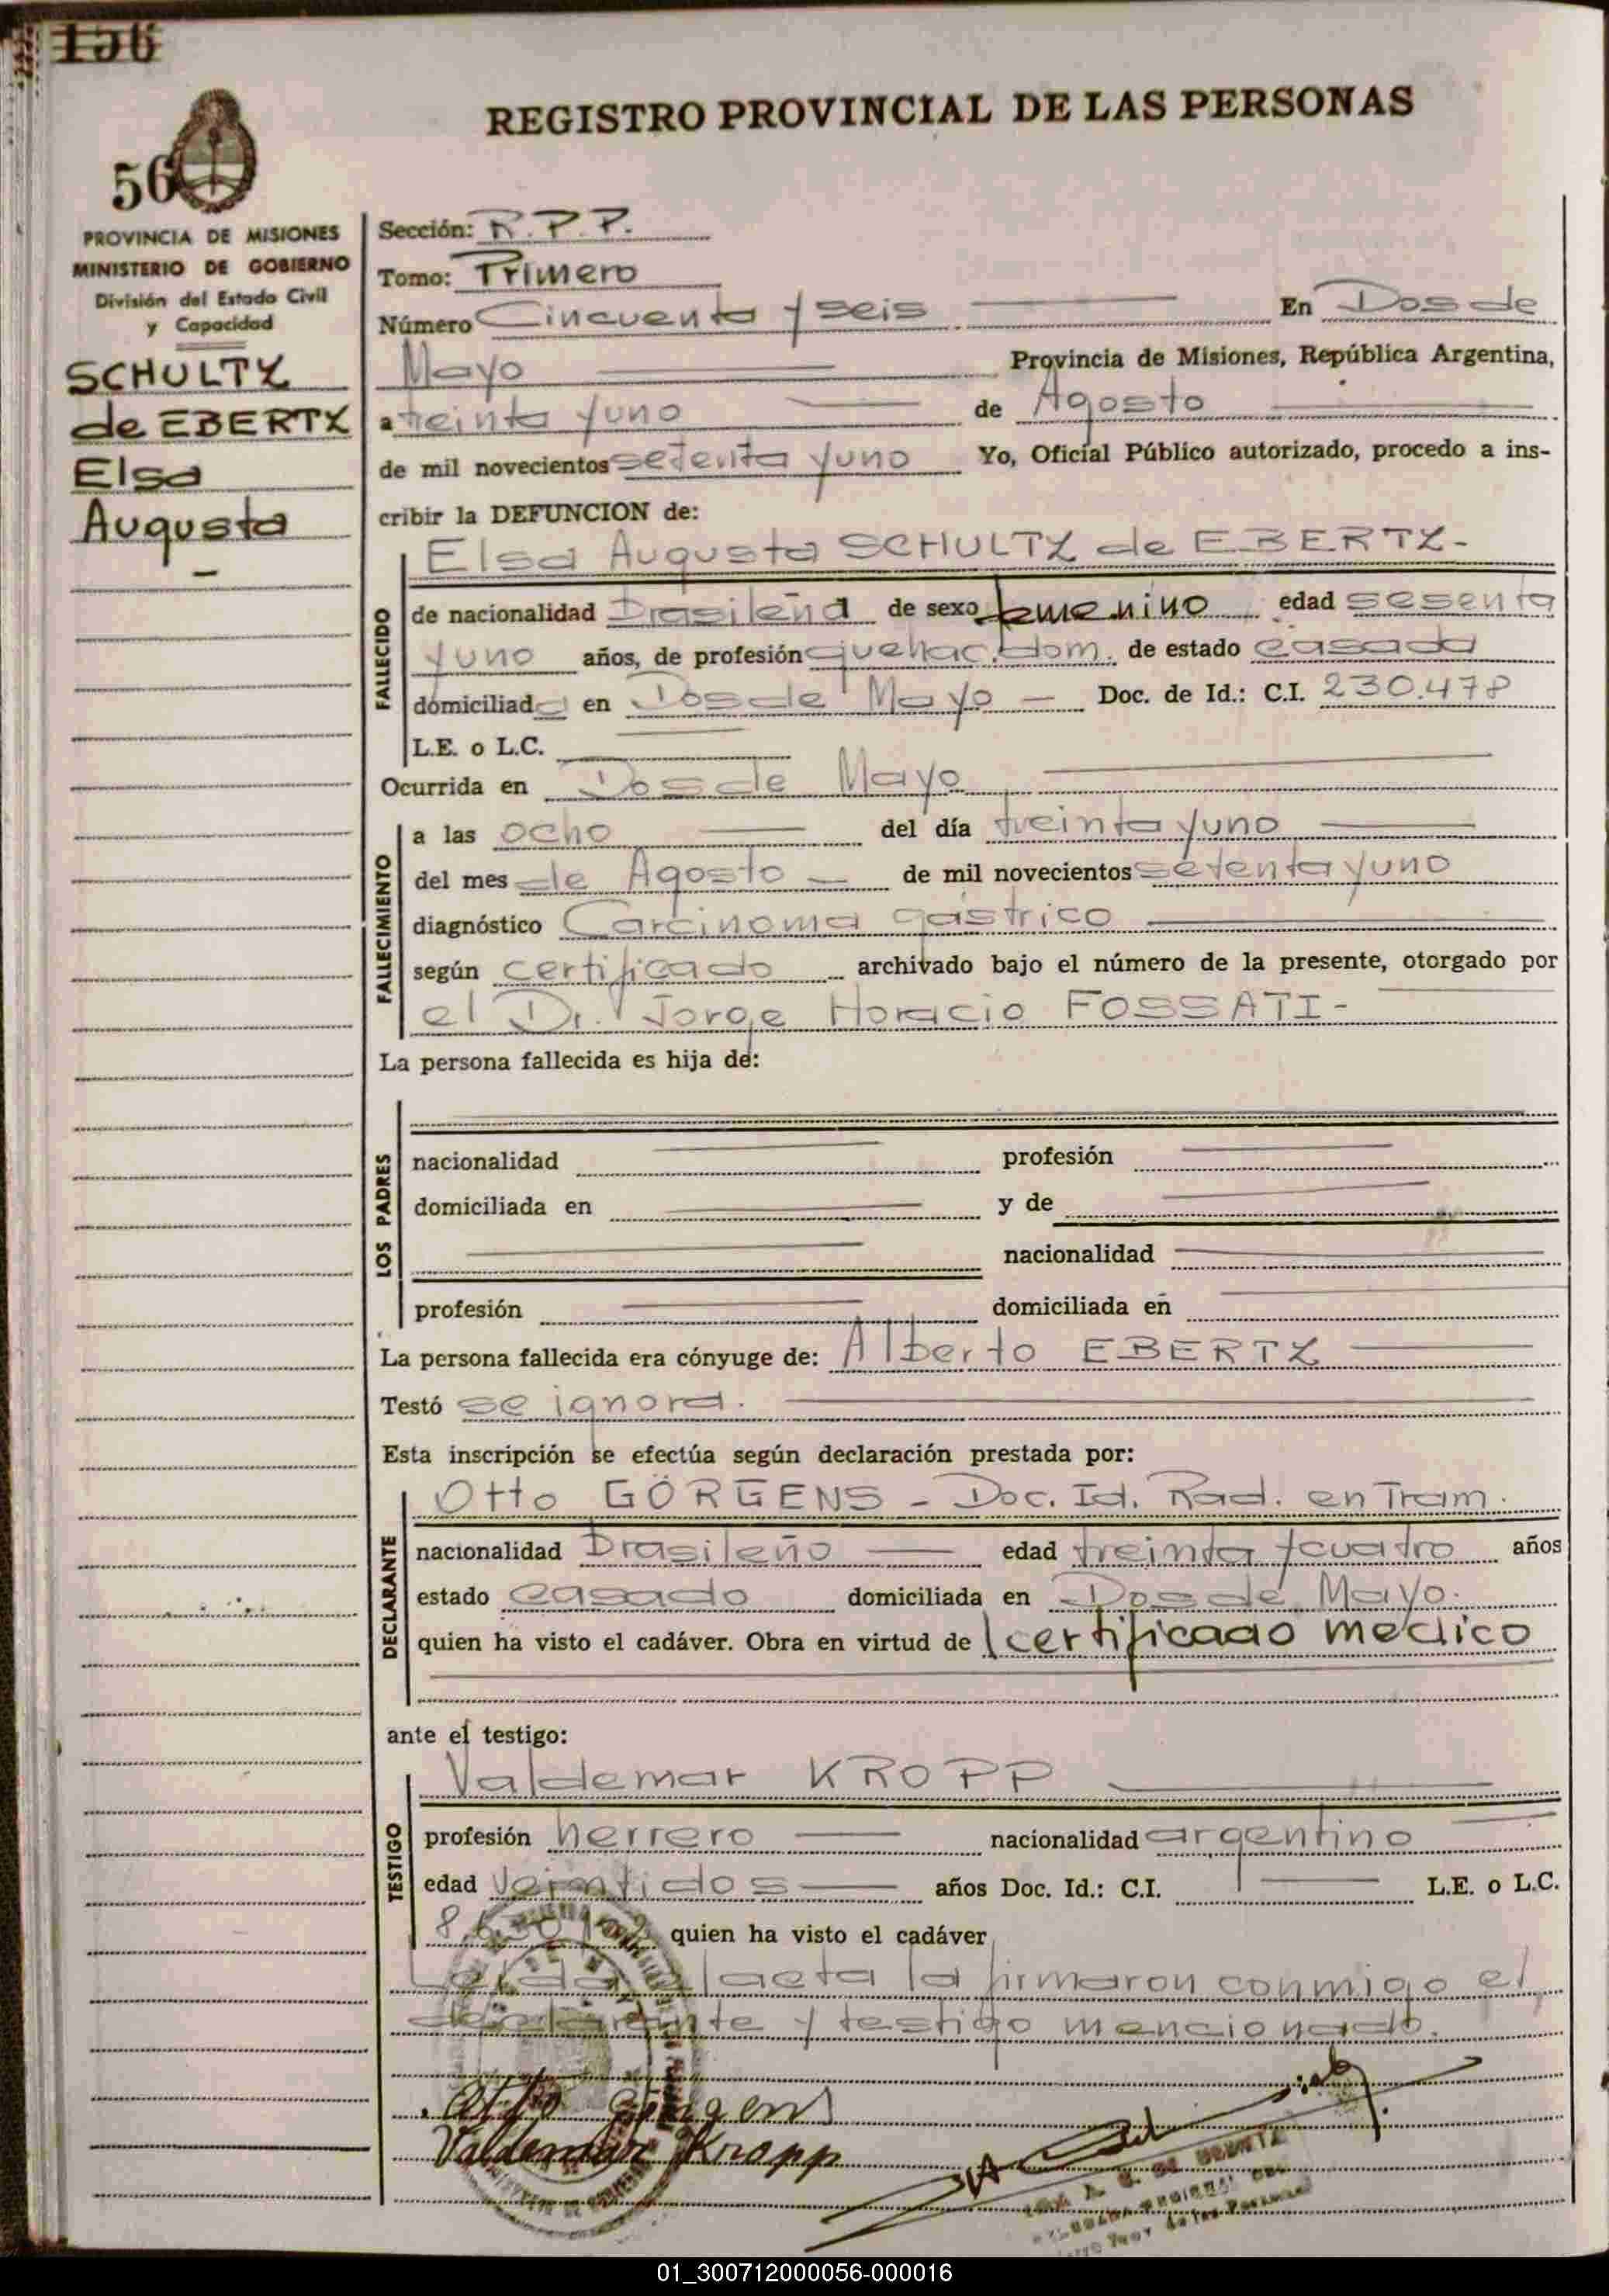 156
REGISTRO PROVINCIAL DE LAS PERSONAS
56
PROVINCIA DE MISIONES
MINISTERIO DE GOBIERNO
División del Estado Civil
y Capacidad
SCHULTZ
de EBERTZ
Elsa
Augusta
Sección: R.P.P.
Tomo: Primero
Número Cincuenta y seis En Dos de
Mayo Provincia de Misiones, República Argentina,
a treinta y uno de Agosto
de mil novecientos setenta y uno Yo, Oficial Público autorizado, procedo a ins-
cribir la DEFUNCION de:
Elsa Augusta SCHULTZ de EBERTZ-
FALLECIDO
de nacionalidad Brasileña de sexo femenino edad sesenta
y uno años, de profesión quehac. dom. de estado casada
domiciliada en Dos de Mayo - Doc. de Id.: C.I. 230.478
L.E. o L.C.
Ocurrida en Dos de Mayo
FALLECIMIENTO
a las ocho del día treinta y uno
del mes de Agosto - de mil novecientos setenta y uno
diagnóstico Carcinoma gástrico
según certificado archivado bajo el número de la presente, otorgado por
el Dr. Jorge Horacio FOSSATI-
La persona fallecida es hija de:
LOS PADRES
nacionalidad profesión
domiciliada en y de
nacionalidad
profesión domiciliada en
La persona fallecida era cónyuge de: Alberto EBERTZ
Testó se ignora.
Esta inscripción se efectúa según declaración prestada por:
Otto GÖRGENS - Doc. Id. Rad. en Tram.
DECLARANTE
nacionalidad Brasileño edad treinta y cuatro años
estado casado domiciliada en Dos de Mayo.
quien ha visto el cadáver. Obra en virtud de certificado medico
ante el testigo:
Valdemar KROPP
TESTIGO
profesión herrero nacionalidad argentino
edad veintidos años Doc. Id.: C.I. L.E. o L.C.
quien ha visto el cadáver
Leida el acta la firmaron conmigo el
declarante y testigo mencionado.
Otto Görgens
Valdemar Kropp
01_300712000056-000016